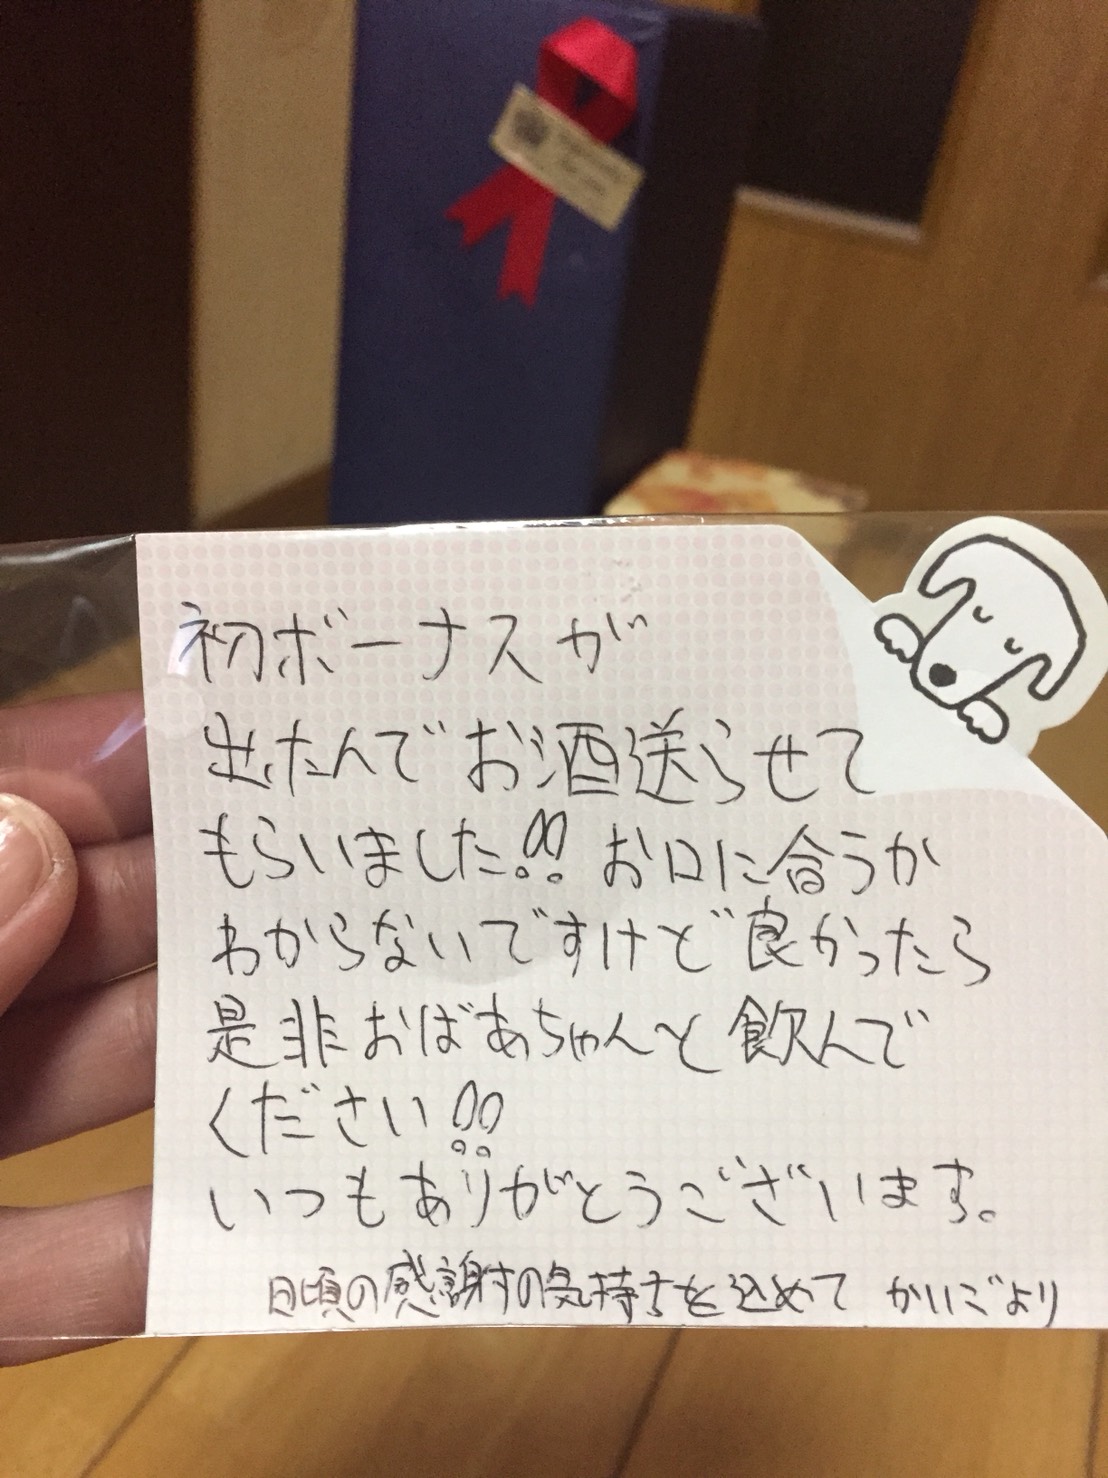 初ボーナスが
出たんでお酒送らせて
もらいました!! お口に合うか
わからないですけど良かったら
是非おばあちゃんと飲んで
ください!!
いつもありがとうございます。
日頃の感謝の気持ちを込めて かいごより